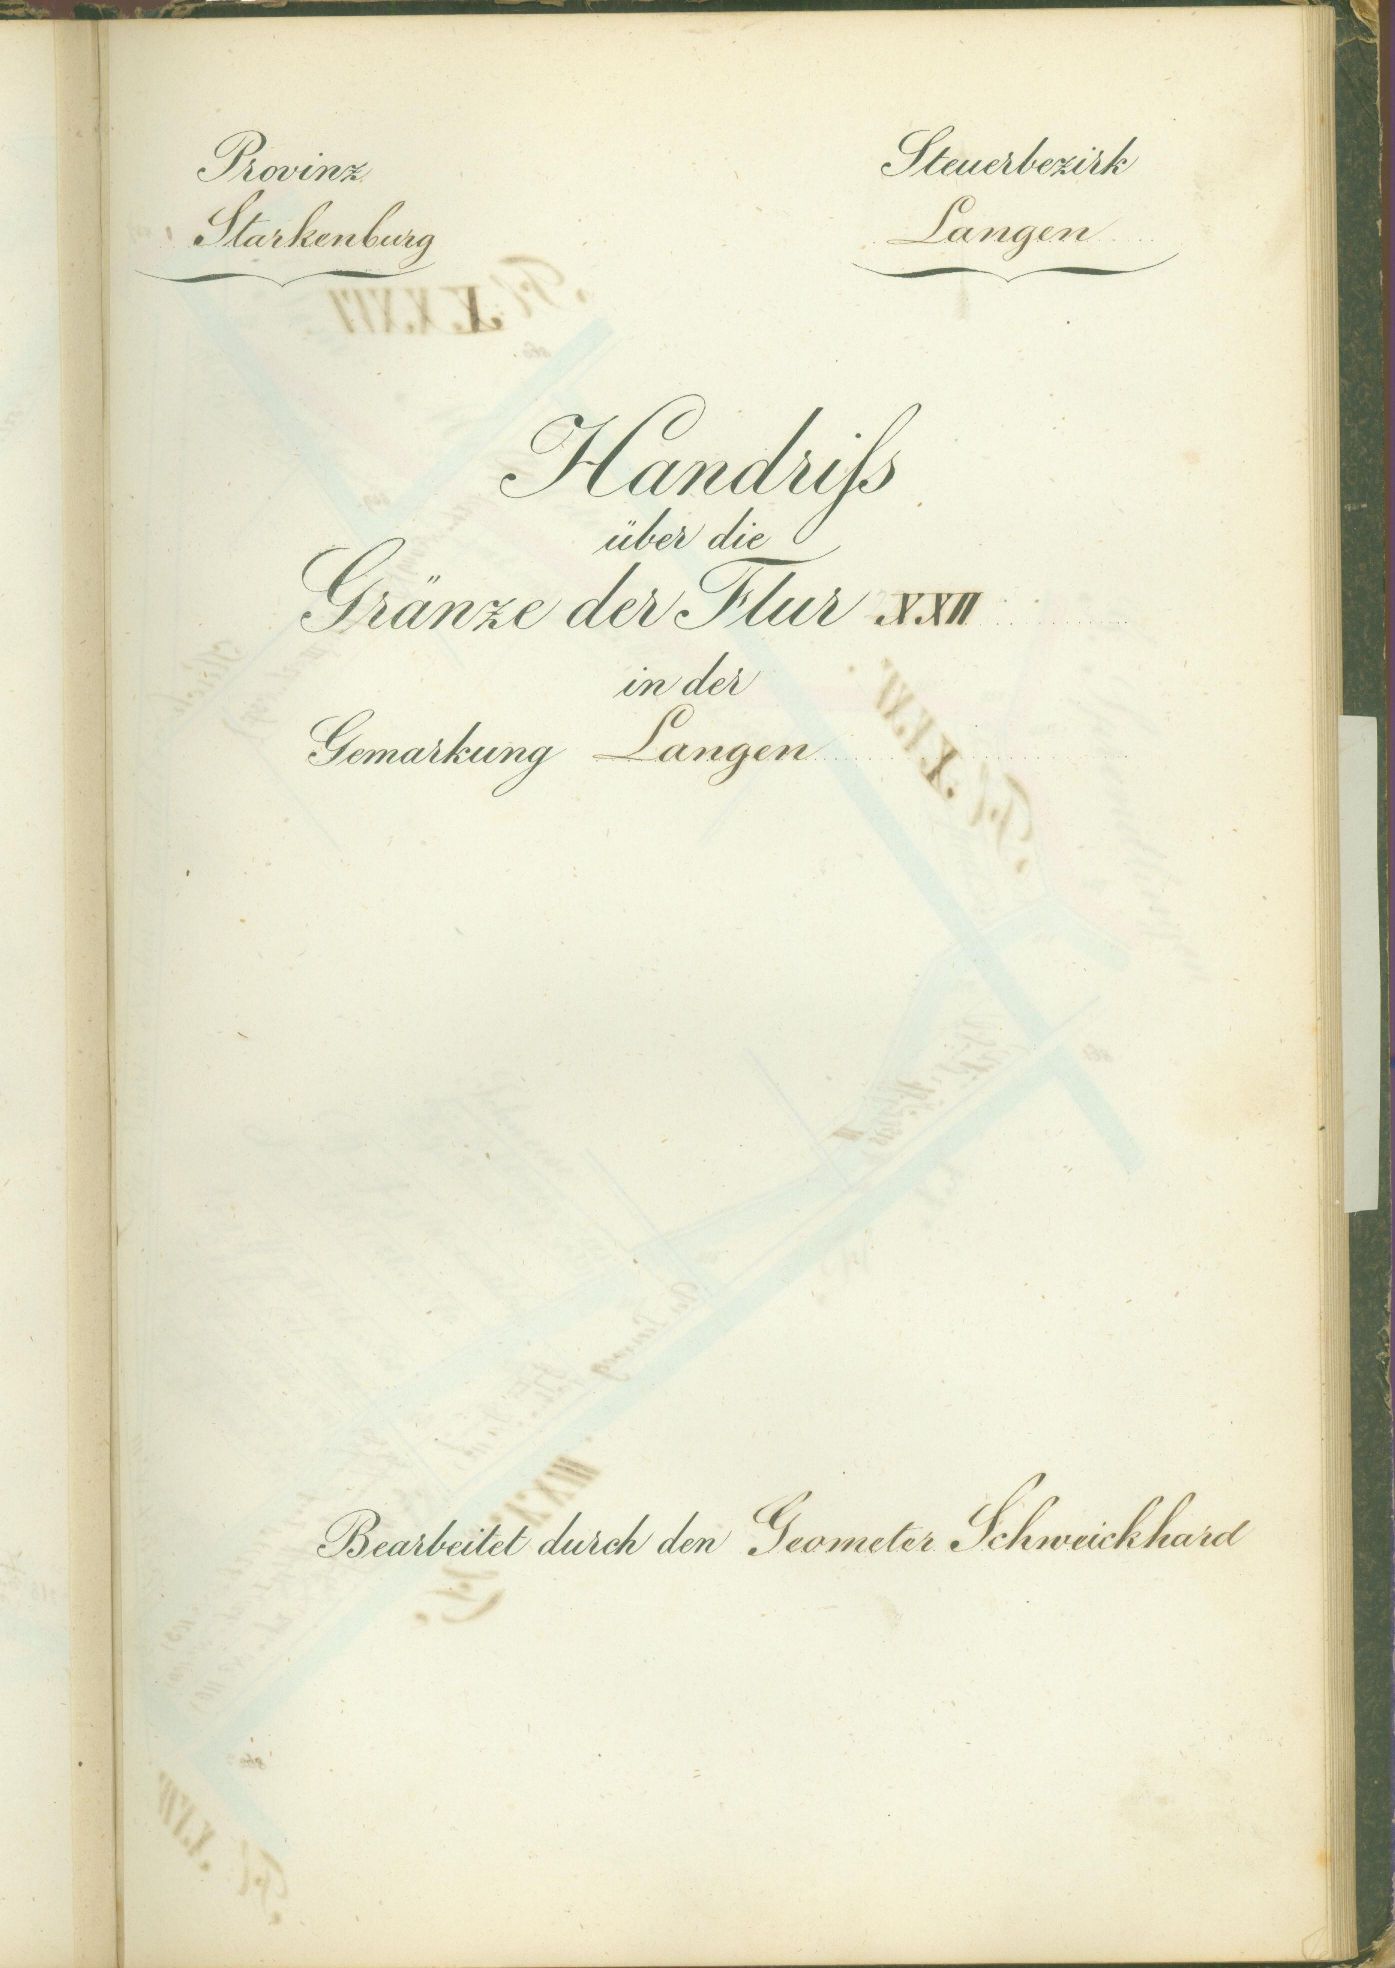 Provinz
Starkenburg
Steuerbezirk
Langen
Handriſs
über die
Gränze der Flur XXII
in der
Gemarkung Langen
Bearbeitet durch den Geometer Schweickhard